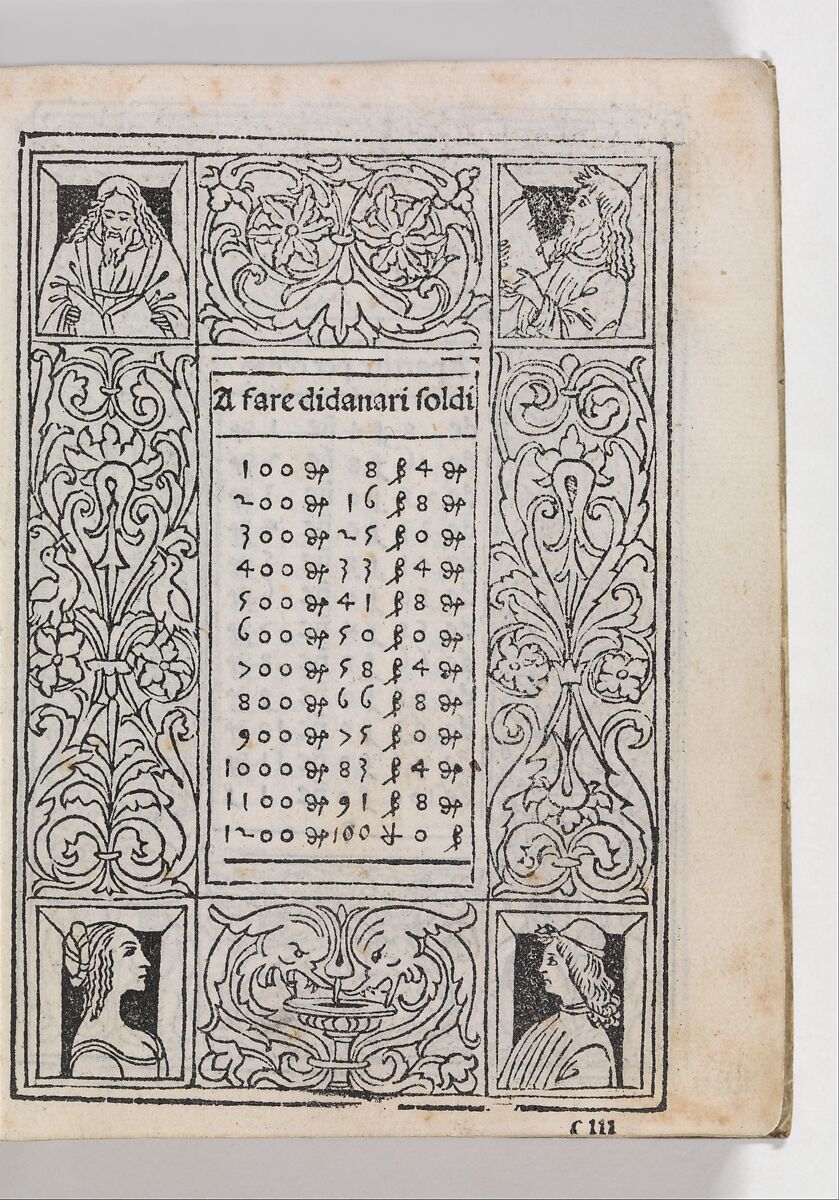 A fare didanari ſoldi
100 ₰ 8 ß 4 ₰
200 ₰ 16 ß 8 ₰
300 ₰ 25 ß 0 ₰
400 ₰ 33 ß 4 ₰
500 ₰ 41 ß 8 ₰
600 ₰ 50 ß 0 ₰
700 ₰ 58 ß 4 ₰
800 ₰ 66 ß 8 ₰
900 ₰ 75 ß 0 ₰
1000 ₰ 83 ß 4 ₰
1100 ₰ 91 ß 8 ₰
1200 ₰ 100 0 ß
c iii